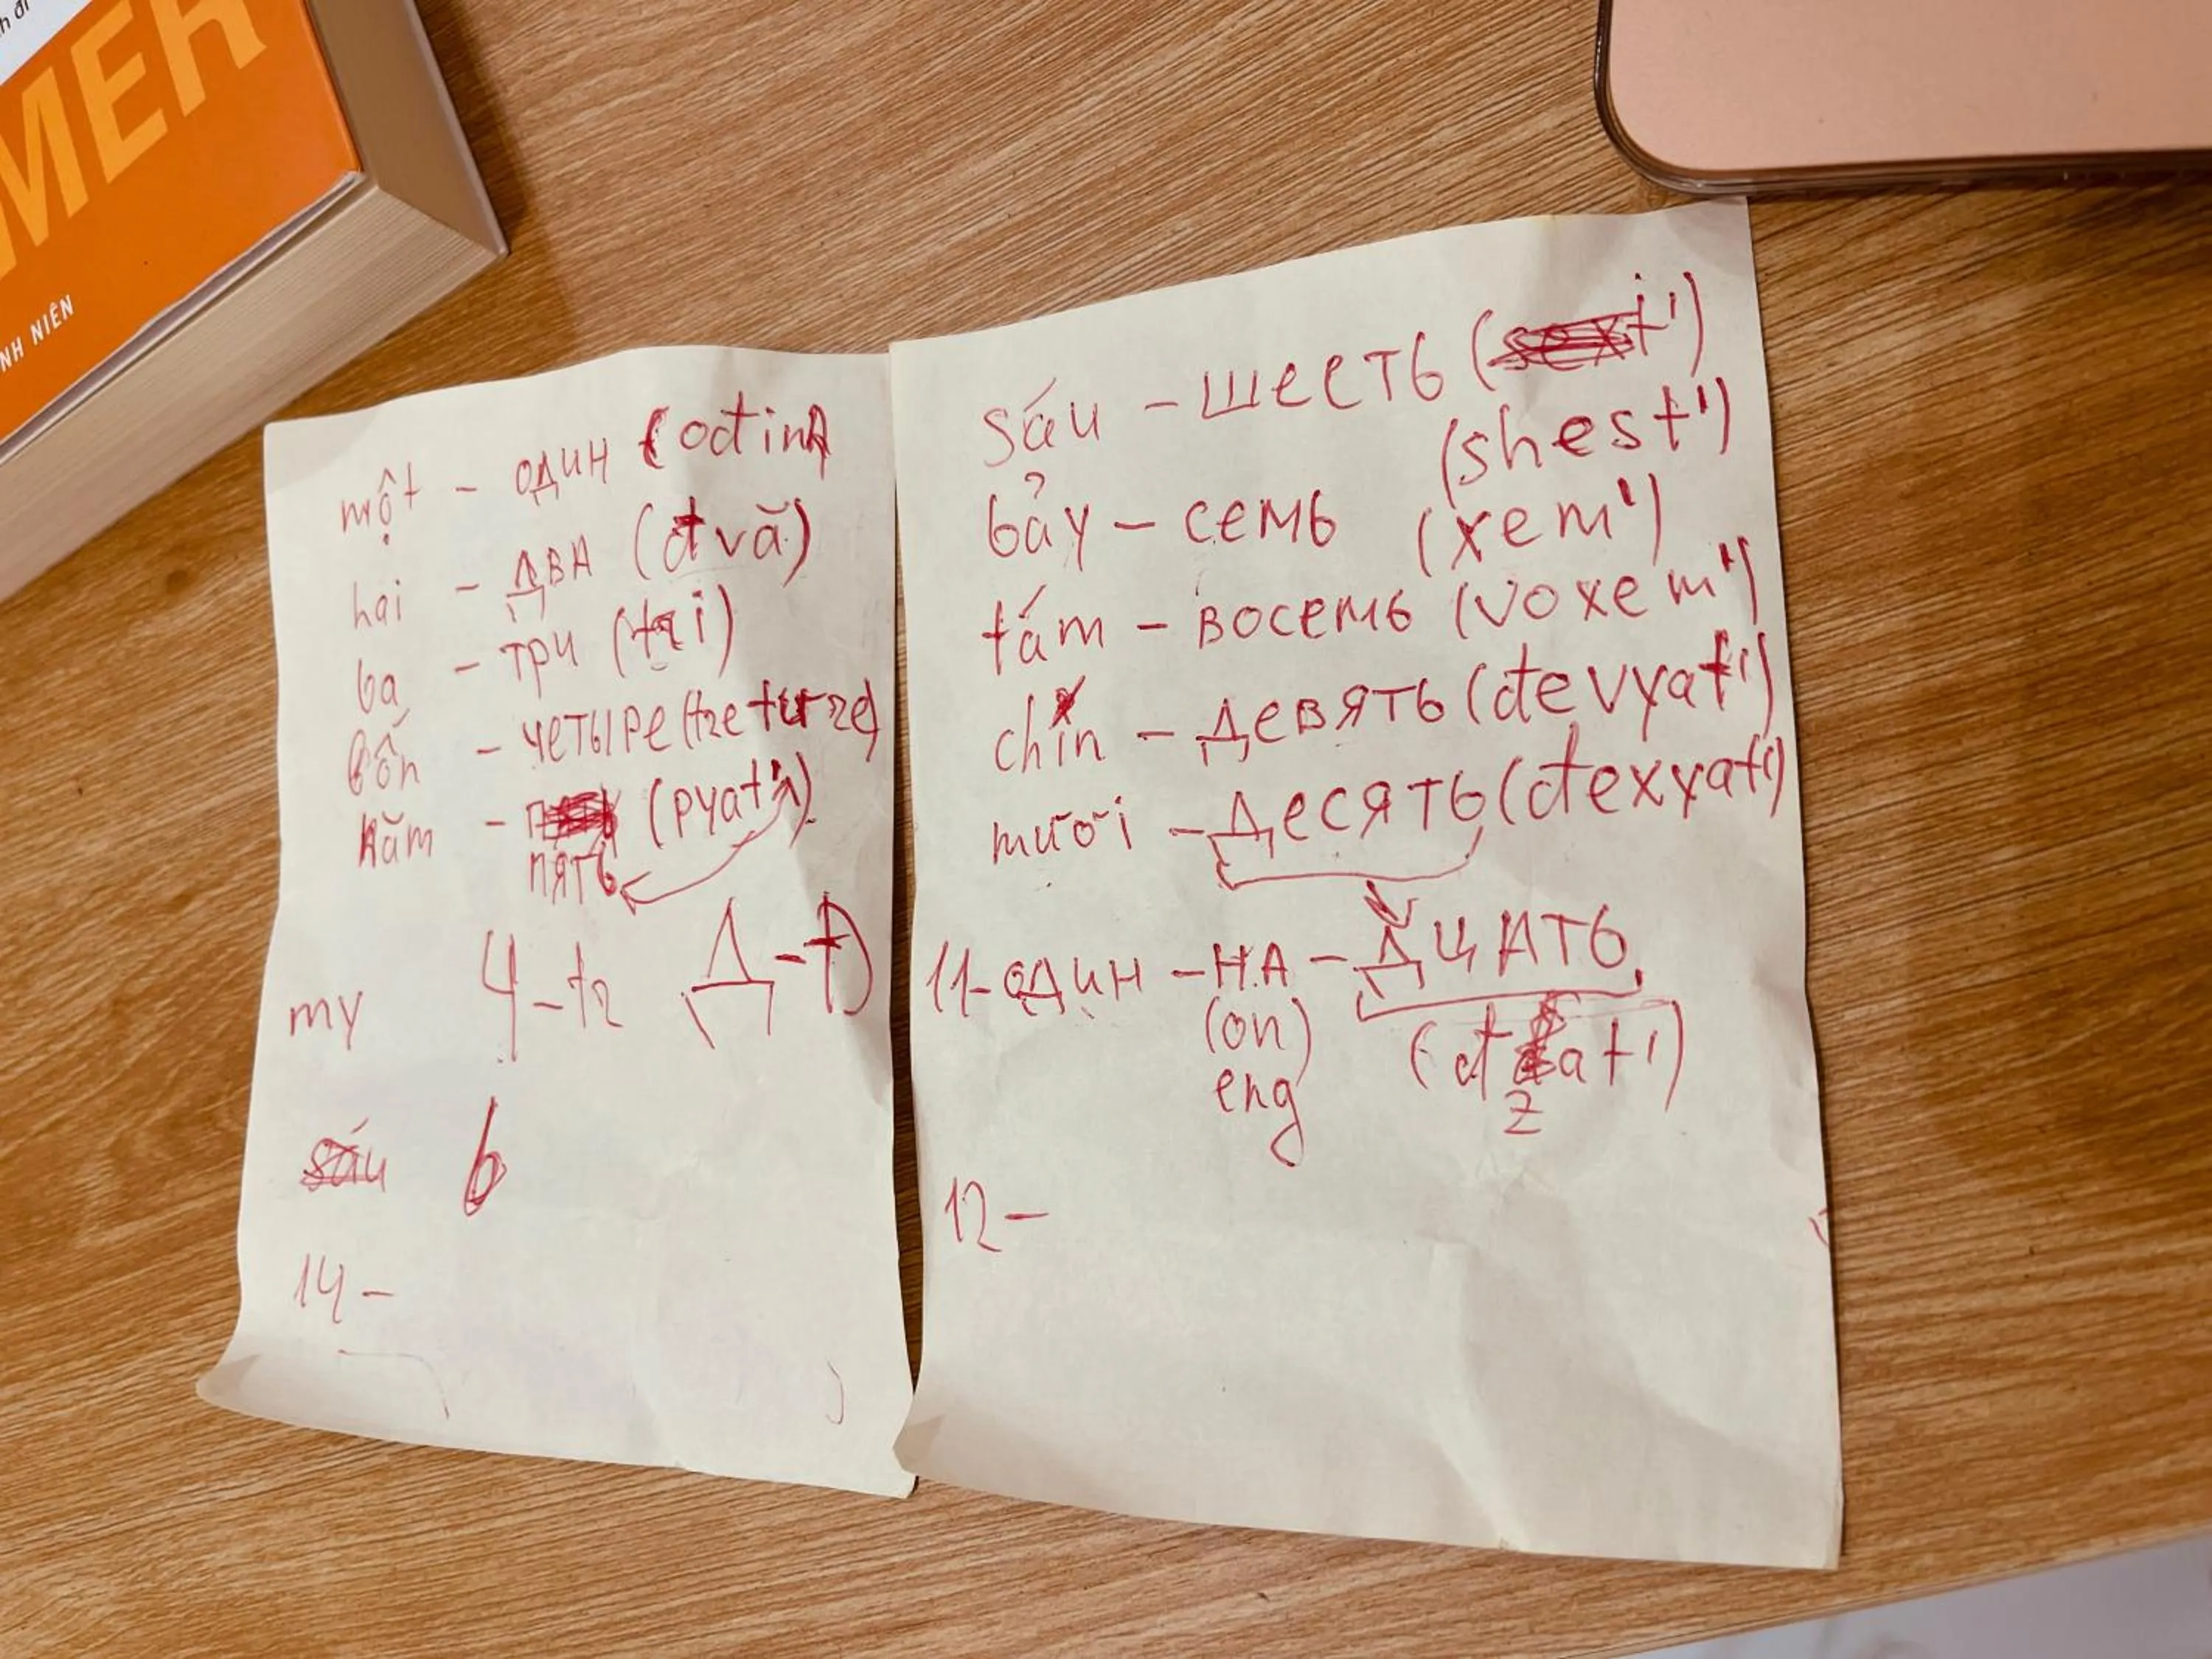 MER
NH NIÊN
một - один (odin)
hai - два (đvă)
ba - три (tri)
bốn - четыре
năm - (pyat')
пять
my ч - tz Д - Đ
sáu 6
14 -
sáu - шесть
(shest')
bảy - семь (xem')
tám - восемь (voxem')
chín - девять (đevyat')
mười - десять (đexyat')
11 - один - на - дцать
(on) (đzat')
eng
12 -